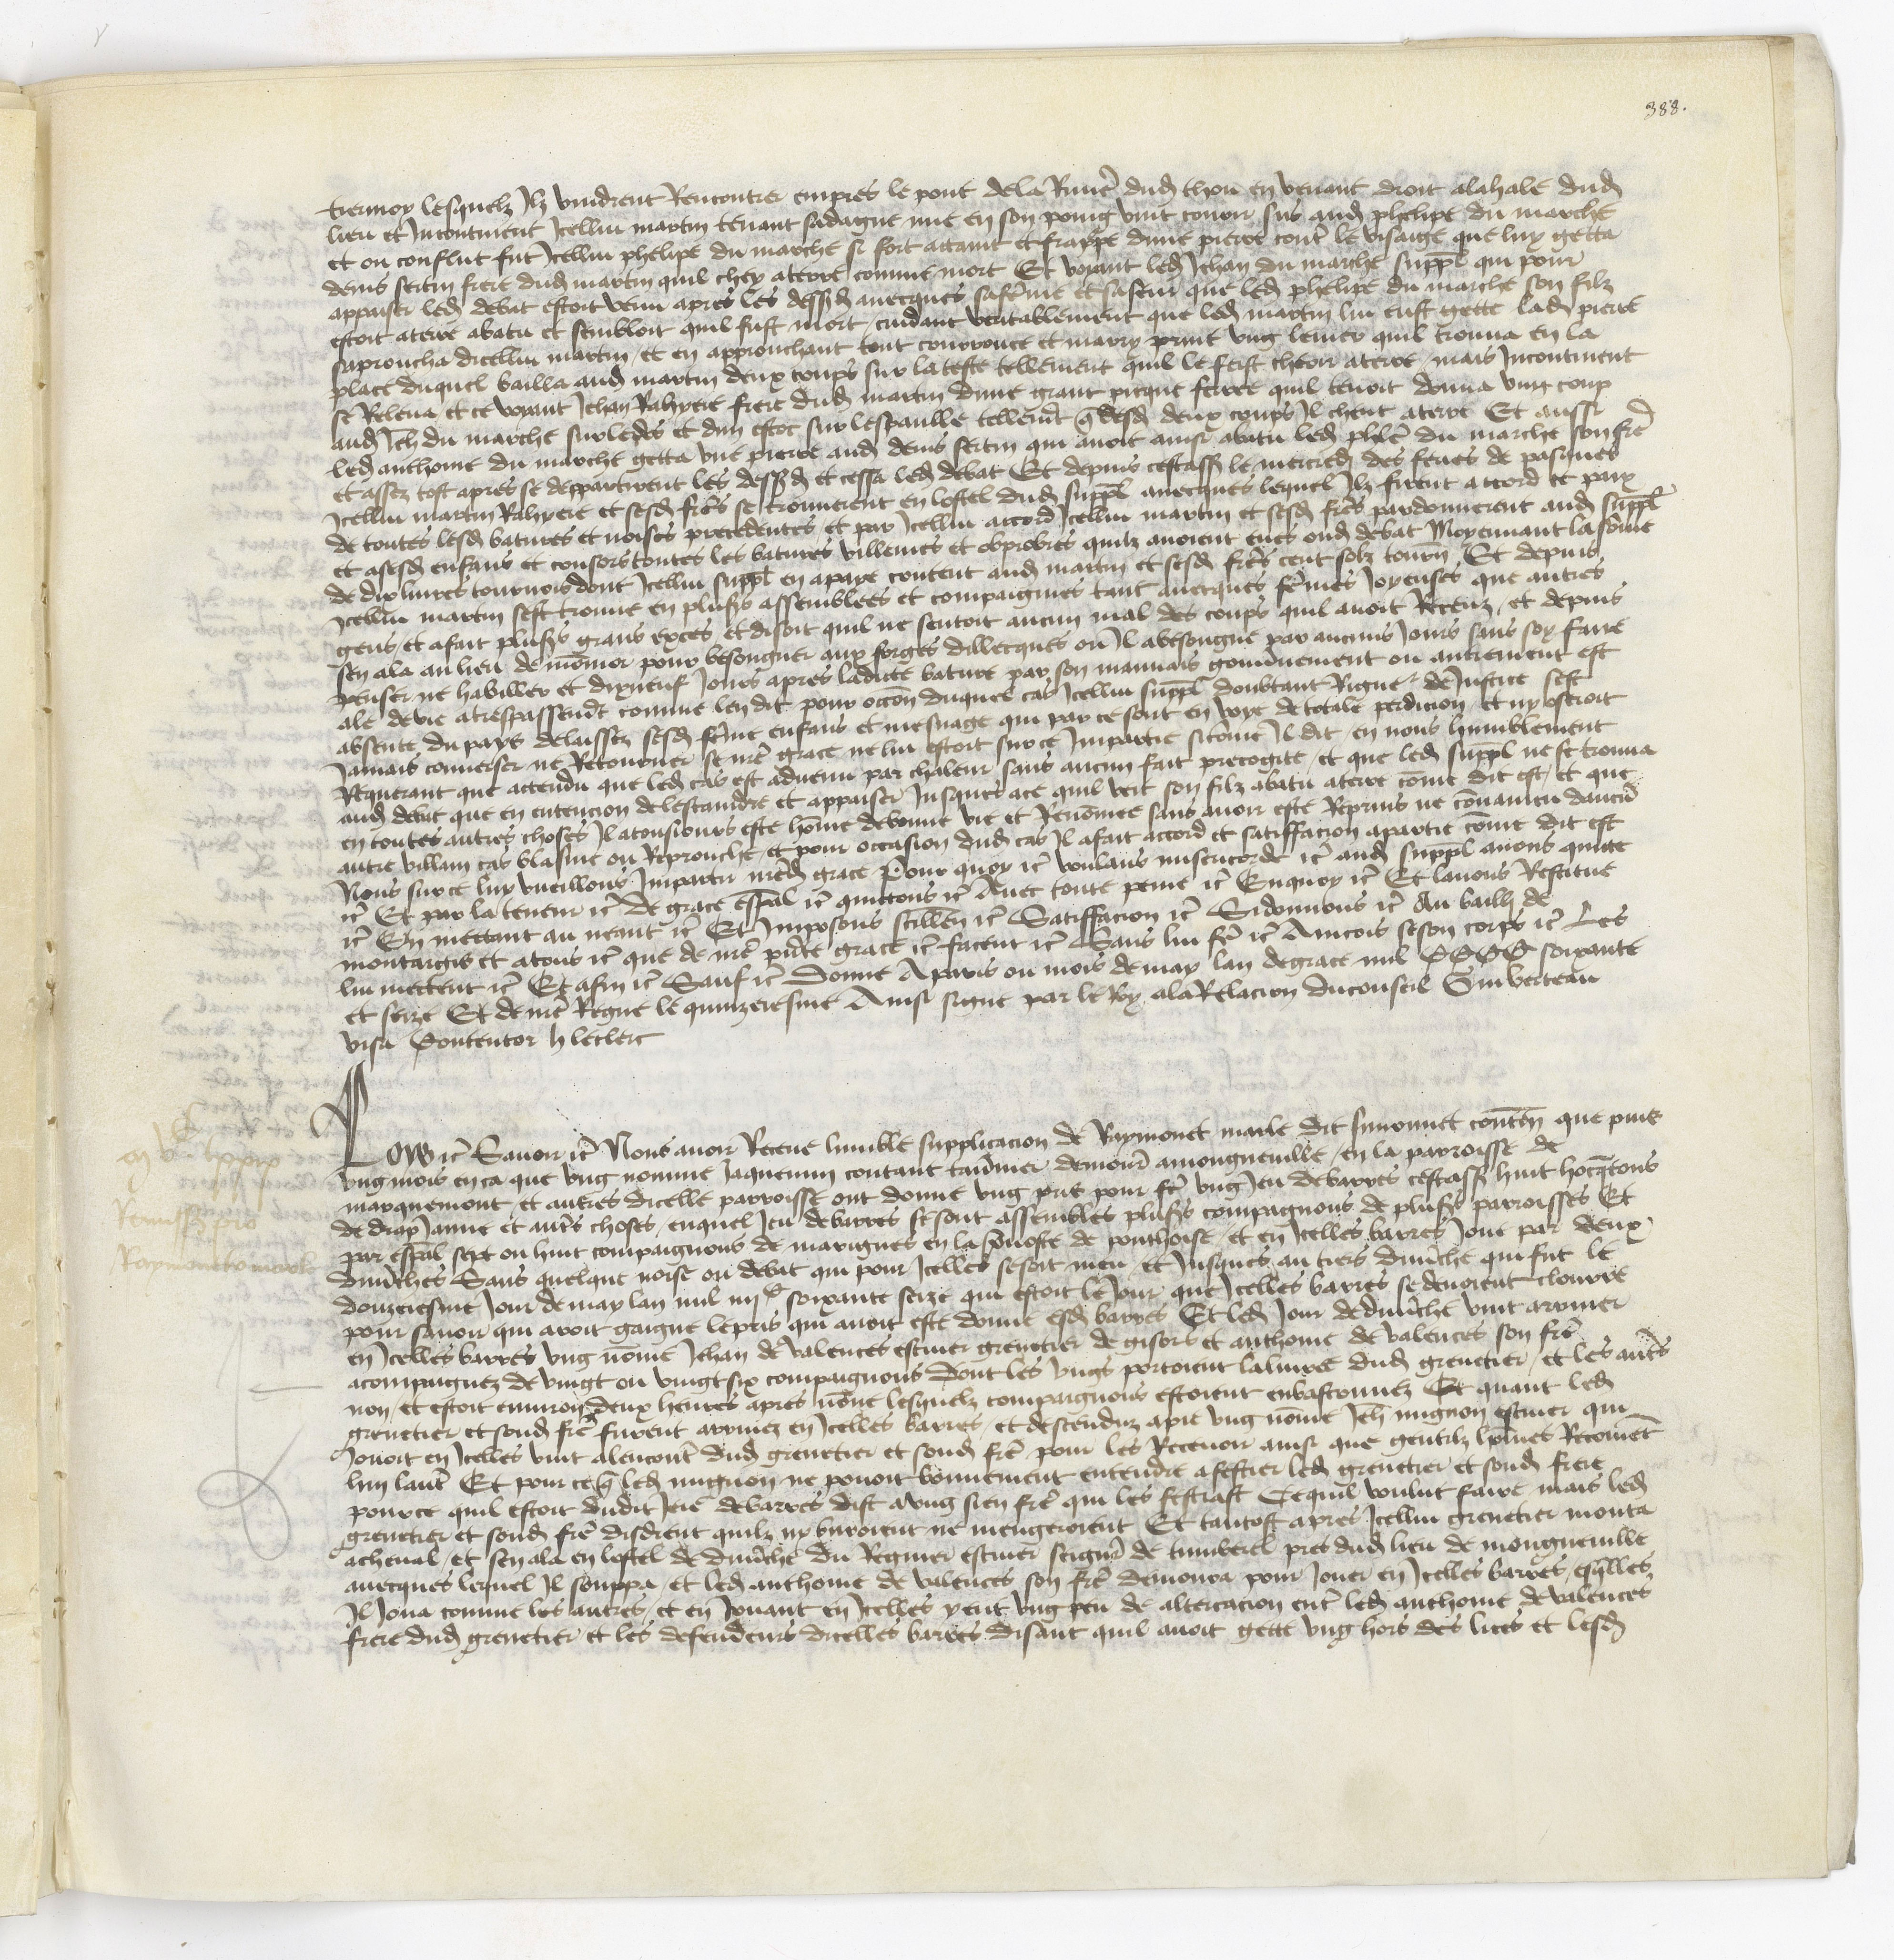 388.
tiernoy lesquelz Ilz vindrent Rencontrer empres le pont de la Riuie dud thou en venant droit alahale dud
lieu et Incontinent Icellui martin tenant sadague nue en son poing vint courir sus aud phelipe du marche
et ou conflut fut Icellui phelipe du marche si fort attaint et frappe dune pierre cont le visaige que luy getta
denis sertin frere dud martin quil chey aterre comme mort Et voyant led Jehan du marche suppl qui pour
appaiser led debat estoit venu apres les dessusd auecques safeme et saseur que led phelipe du marche son filz
estoit aterre abatu et sembloit quil fust mort / cuidant veritablement que led martin lui eust gette lad pierre
saproucha dicellui martin / et en approuchant tout courrouce et marry print vng leuier quil trouua en la
place duquel bailla aud martin deux coups sur la teste tellement quil le feist cheoir aterre / mais Incontinent
se Releua et ce voyant Jehan Rahyere frere dud martin dune grant picque ferree quil tenoit donna vng coup
aud Jeh du marche sur ledos et dun estoc sur lespaulle tellemt q desd deux coups Il cheut aterre Et aussi
led anthoine du marche getta vne pierre aud denis sertin qui auoit ainsi abatu led phele du marche son fre
et assez tost apres se departirent les dessusd et cessa led debat Et depuis cestass le mercredi des feries de pasques
Icellui martin Rahyere et sesd fres se trouuerent en lostel dud suppl auecques lequel Ilz firent accord et paix
de toutes lesd batures et noises precedentes / et par Icellui accord Icellui martin et sesd fres pardonnerent aud suppl
et asesd enfans et consors toutes les batures villenies et obprobres quilz auoient eues oud debat Moyennant la some
de dix liures tournois dont Icellui suppl en apaye content aud martin et sesd fres cent solz tourn Et depuis
Icellui martin sest trouue en plusrs assemblees et compaignies tant auecques femes Joyeuses que autres
gens / et afait plusrs grans exces / et disoit quil ne sentoit aucun mal des coups quil auoit Receuz / et depuis
sen ala au lieu de momor pour besongner aux forges dillecques ou Il abesongne par aucuns Jours sans soy faire
penser ne habiller et dixneuf Jours apres ladicte bature par son mauuais gouuernement ou autrement est
ale devie atrespassemt comme len dit pour occon duquel cas Icellui suppl doubtant Rigueur de Justice sest
absente du pays delaissez sesd feme enfans et mesnage qui par ce sont en voye de totale perdicion / et ny oseroit
Jamais conuerser ne Retourner se nre grace ne lui estoit surce Impartie sicome Il dit en nous humblement
Requerant que attendu que led cas est aduenu par chaleur sans aucun fait precogite / et que led suppl ne se trouua
aud debat que en entencion delestaindre et appaiser Jusques ace quil veit son filz abatu aterre come dit est / et que
en toutes autres choses Il atousiours este home debonne vie et Renomee sans auoir este Reprins ne conuaincu daucun
autre villain cas blasme ou Reprouche / et pour occasion dud cas Il afait accord et satiffacion apartie come dit est
Nous surce luy vueillons Impartir nred grace Pour quoy etc voulans misericorde etc aud suppl auons quicte
etc Et par la teneur etc De grace espal etc quictons etc Auec toute peine etc Enquoy etc Et lauons Restitue
etc En mettant au neant etc Et Imposons scillen etc Satiffacion etc Sidonnons etc Au bailly de
montargis et atous etc que de nre pnte grace etc facent etc Sans lui fe etc Aincois seson corps etc Les
lui mettent etc Et afin etc Sauf etc Donne Aparis ou mois demay lan degrace mil CCCC soixante
et seize Et denre Regne le quinzeiesme Ainsi signe par le Roy ala Relacion duconseil Gimberteau
visa Contentor h leclerc
Remiss pro
Raymoneto marle
LOYS etc Sauoir etc Nous auoir Receue lumble supplicacion de Raymonet marle dit simonnet conten que puis
vng mois enca que vng nomme Jaquemin contant tauernier demour amongueuille / en la parroisse de
marquemont et autres dicelle parroisse ont donne vng pris pour fe vng Jeu debarres cestass huit hocqtons
de drap Jaune et autrs choses / enquel Jeu debarres se sont assembles plusrs compagnons de plusrs parroisses Et
par espal sept ou huit compaignons de marignes en la preuoste de ponthoise / et en Icelles barres Joue par deux
dimches Sans quelque noise ou debat qui pour Icelles sesoit meu / et Jusques au tiers dimche qui fut le
douzeiesme Jour de may lan mil iiiic soixante seize qui estoit le Jour que Icelles barres se deuoient clourre
pour sauoir qui auoit gaigne le pris qui auoit este donne esd barres Et led Jour dedimche vint arriuer
en Icelles barres vng nome Jehan de valences escuier grenetier de gisors et anthoine de valences son fre
acompaignez de vingt ou vingtsix compaignons dont les vngs portoient laliuree dud grenetier / et les autrs
non / et estoit enuiron deux heures apres none lesquelz compaignons estoient enbastonnez Et quant led
grenetier et sond fre furent arriuez en Icelles barres / et descenduz apie vng nome Jeh mignon escuier qui
Jouoit en Icelles vint alencont dud grenetier et sond fre pour les Receuoir ainsi que gentilz homes Recoiuet
lun laut Et pour ce q led mignon ne pouoit bonnement entendre afestier led grenetier et sond frere
pource quil estoit dudit Jeu debarres dist avng sien fre qui les festiast Cequil voulut faire mais led
grenetier et sond fre disdrent quilz ny buroient ne mengeroient Et tantost apres Icellui grenetier monta
acheual / et sen ala en lostel de dimche du Regnier escuier seigneur de tumberel pres dud lieu de mongueuille
auecques lequel Il souppa / et led anthoine de valences son fre demoura pour Jouer en Icelles barres / esqlles
Il Joua comme les autres / et en Jouant en Icelles yeut vng peu de altercacion ent led anthoine de valences
frere dud grenetier et les defendeurs dicelles barres disant quil auoit gette vng hors des lices et lesd